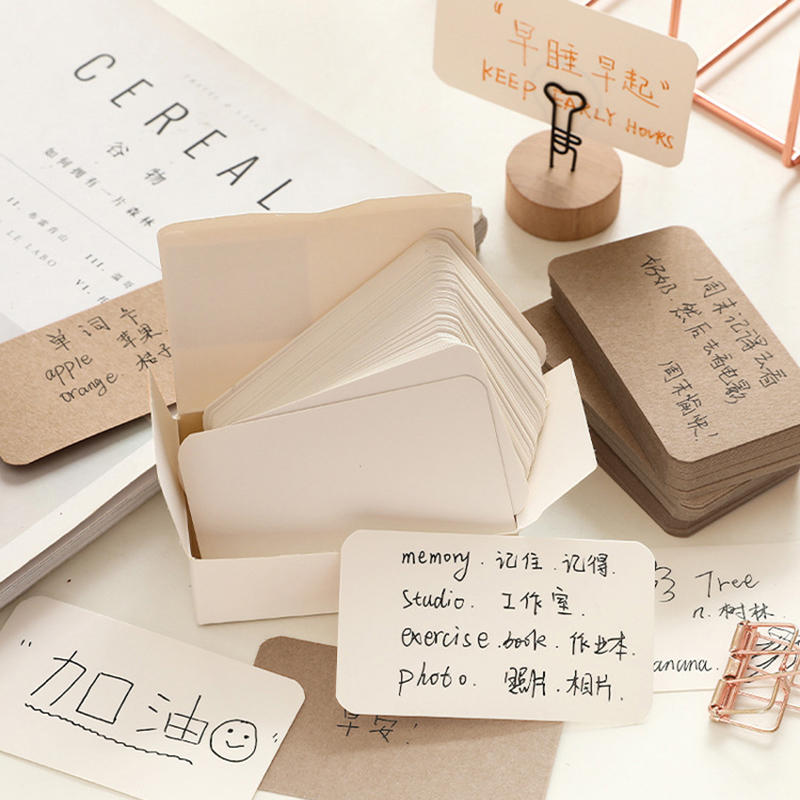 CEREAL
谷物
如何拥有一片森林
II. 布雷肯山
LE LABO
III. 温哥
VI.
"早睡早起"
KEEP EARLY HOURS
单词卡
apple 苹果
orange. 桔子
周末记得去看
奶奶,然后去看电影
周末愉快!
memory. 记住.记得.
Studio. 工作室.
exercise.book. 作业本.
photo. 照片.相片.
Tree
n. 树林.
anana.
"加油☺"
早安!